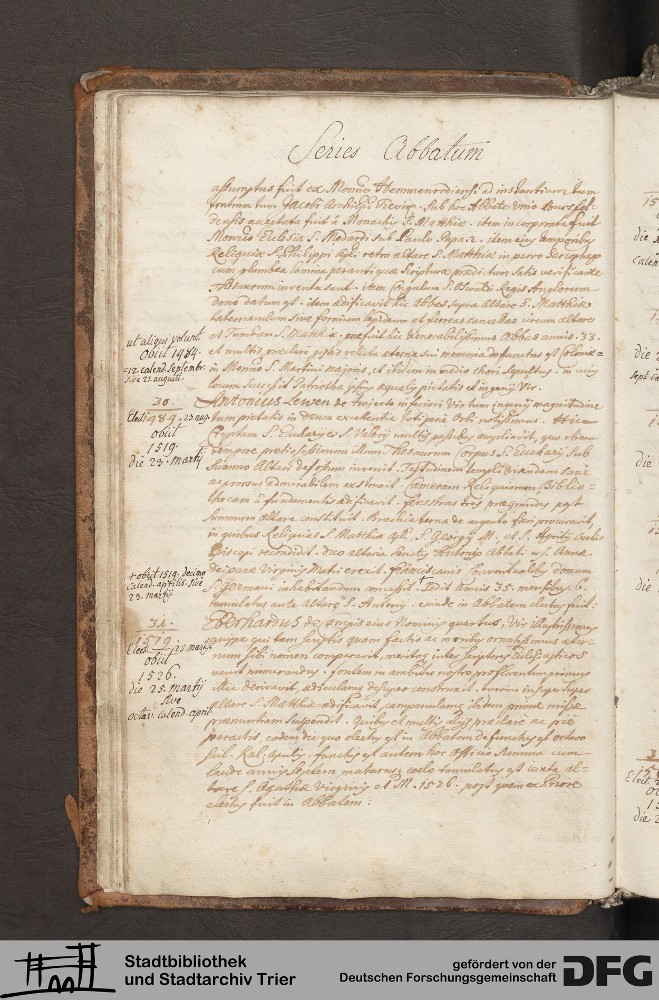 Series Abbatum
assumptus fuit ex Monrio Hemmenrodiensi ad instantiam tum
fratrum tum Jacobi Archiepi Trevir. Sub hoc Abbate Unio Burssfel-
densis acceptata fuit à Monachis S. Matthiæ. item incorporata fuit
Monrio Ecclesia S. Medardi sub Paulo Papa 2. item ejus temporibus
Reliquiæ S. Philippi Apli retro altare S. Matthiæ in parvo Sarcophago
cum plumbea lamina per antiqua scriptura prædictum satis verificante
Thesaurum inventa sunt. item Cingulum S. Oswaldi Regis Anglorum
dono datum est. item ædificavit hic abbas supra altare S. Matthiæ
tabernaculum sive fornicem lapideum et ferreos cancellos circum altare
et Tumbam S. Matthiæ. præfuit hic Venerabilissimus Abbas annis. 33.
ut aliqui volunt
Obiit 1484.
12 calend. Septembr.
sive 21. augusti.
et multis præclare gestis relicta æterna sui memoria defunctus est Coloniæ
in Monrio S. Martini majoris, et ibidem in medio chori sepultus. in cujus
locum successit Patriotha ipsius æqualis pietatis et ingenii Vir.
30.
Elect. 1484. 23 aug.
obiit
1519.
die 23. Martij
Antonius Lewen de trajecto inferiori Vir tum ingenij magnitudine
tum pietatis in Deum excellentia toti pene Orbi notissimus. Hic
Cryptam S. Eucharij et S. Valerij multis passibus ampliavit, quo etiam
tempore pretiosissimum illum Thesaurum Corpus S. Eucharij sub
Summo Altari defossum invenit. Testudinem templi variandam sane
ac prorsus admirabilem extruxit. Cameram Reliquiarum, Biblio-
thecam à fundamentis ædificavit. fenestras tres prægrandes post
summum altare constituit. Brachia terna de argento fieri procuravit,
in quibus Reliquias S. Matthiæ Apli, S. Georgij M. et S. Agritij
Episcopi recondidit. duo altaria Sanctis Antonio Abbati et S. Annæ
Deiparæ Virginis Matri erexit. franciscanis Conventualibus domum
+ obiit 1519. decimo
calend. aprilis. sive
23. martij
S. Germani inhabitandam concessit. + Sedit Annis 35. mensibus 6.
tumulatus ante altare S. Antonij. exinde in Abbatem electus fuit:
31.
1519.
Elect. 25 martij
obiit
1526.
die 25. Martij
sive
octav. calend. april
Eberhardus de Campis ejus Nominis quartus, Vir illustrissimus
quippe qui tam scriptis quam factis ac moribus ornatissimus æter-
num sibi nomen comparavit, meritoq inter Scriptores Ecclesiasticos
venit numerandus. fontem in ambitu nostro profluentem primus
illuc derivavit, ædiculamq desuper construxit. turrim insuper super
altare S. Matthiæ ædificavit, campanulamq ibidem primæ missæ
prænuntiam suspendit. Quibus et multis alijs præclare ac pie
peractis, eodem die quo electus est in Abbatem defunctus est octavo
scil. Kal. Aprilis. functus est autem hoc Officio summa cum
laude annis septem, maturus cœlo tumulatus est juxta al-
tare S. Agathæ Virginis et M. 1526. post quem ex Priore
electus fuit in Abbatem:
Stadtbibliothek
und Stadtarchiv Trier
gefördert von der
Deutschen Forschungsgemeinschaft
DFG